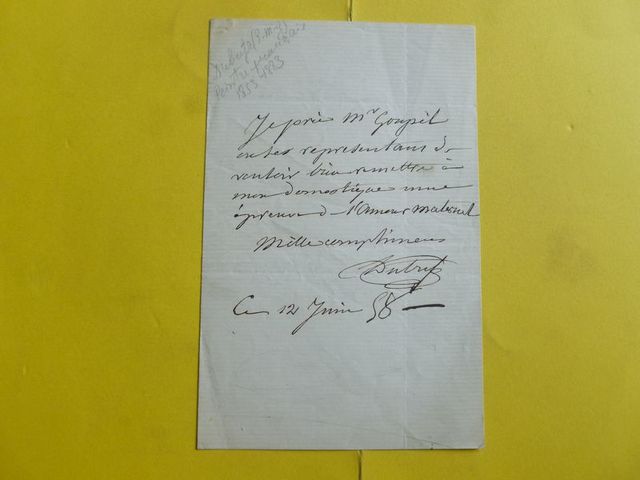 Dubufe (P.M.)
Peintre français
1853 4883
Je prie Mr Goupil
ou ses representans de
vouloir bien remettre à
mon domestique une
épreuve d l'Amour maternel
Mille complimens
Dubufe
Ce 12 Juin 58